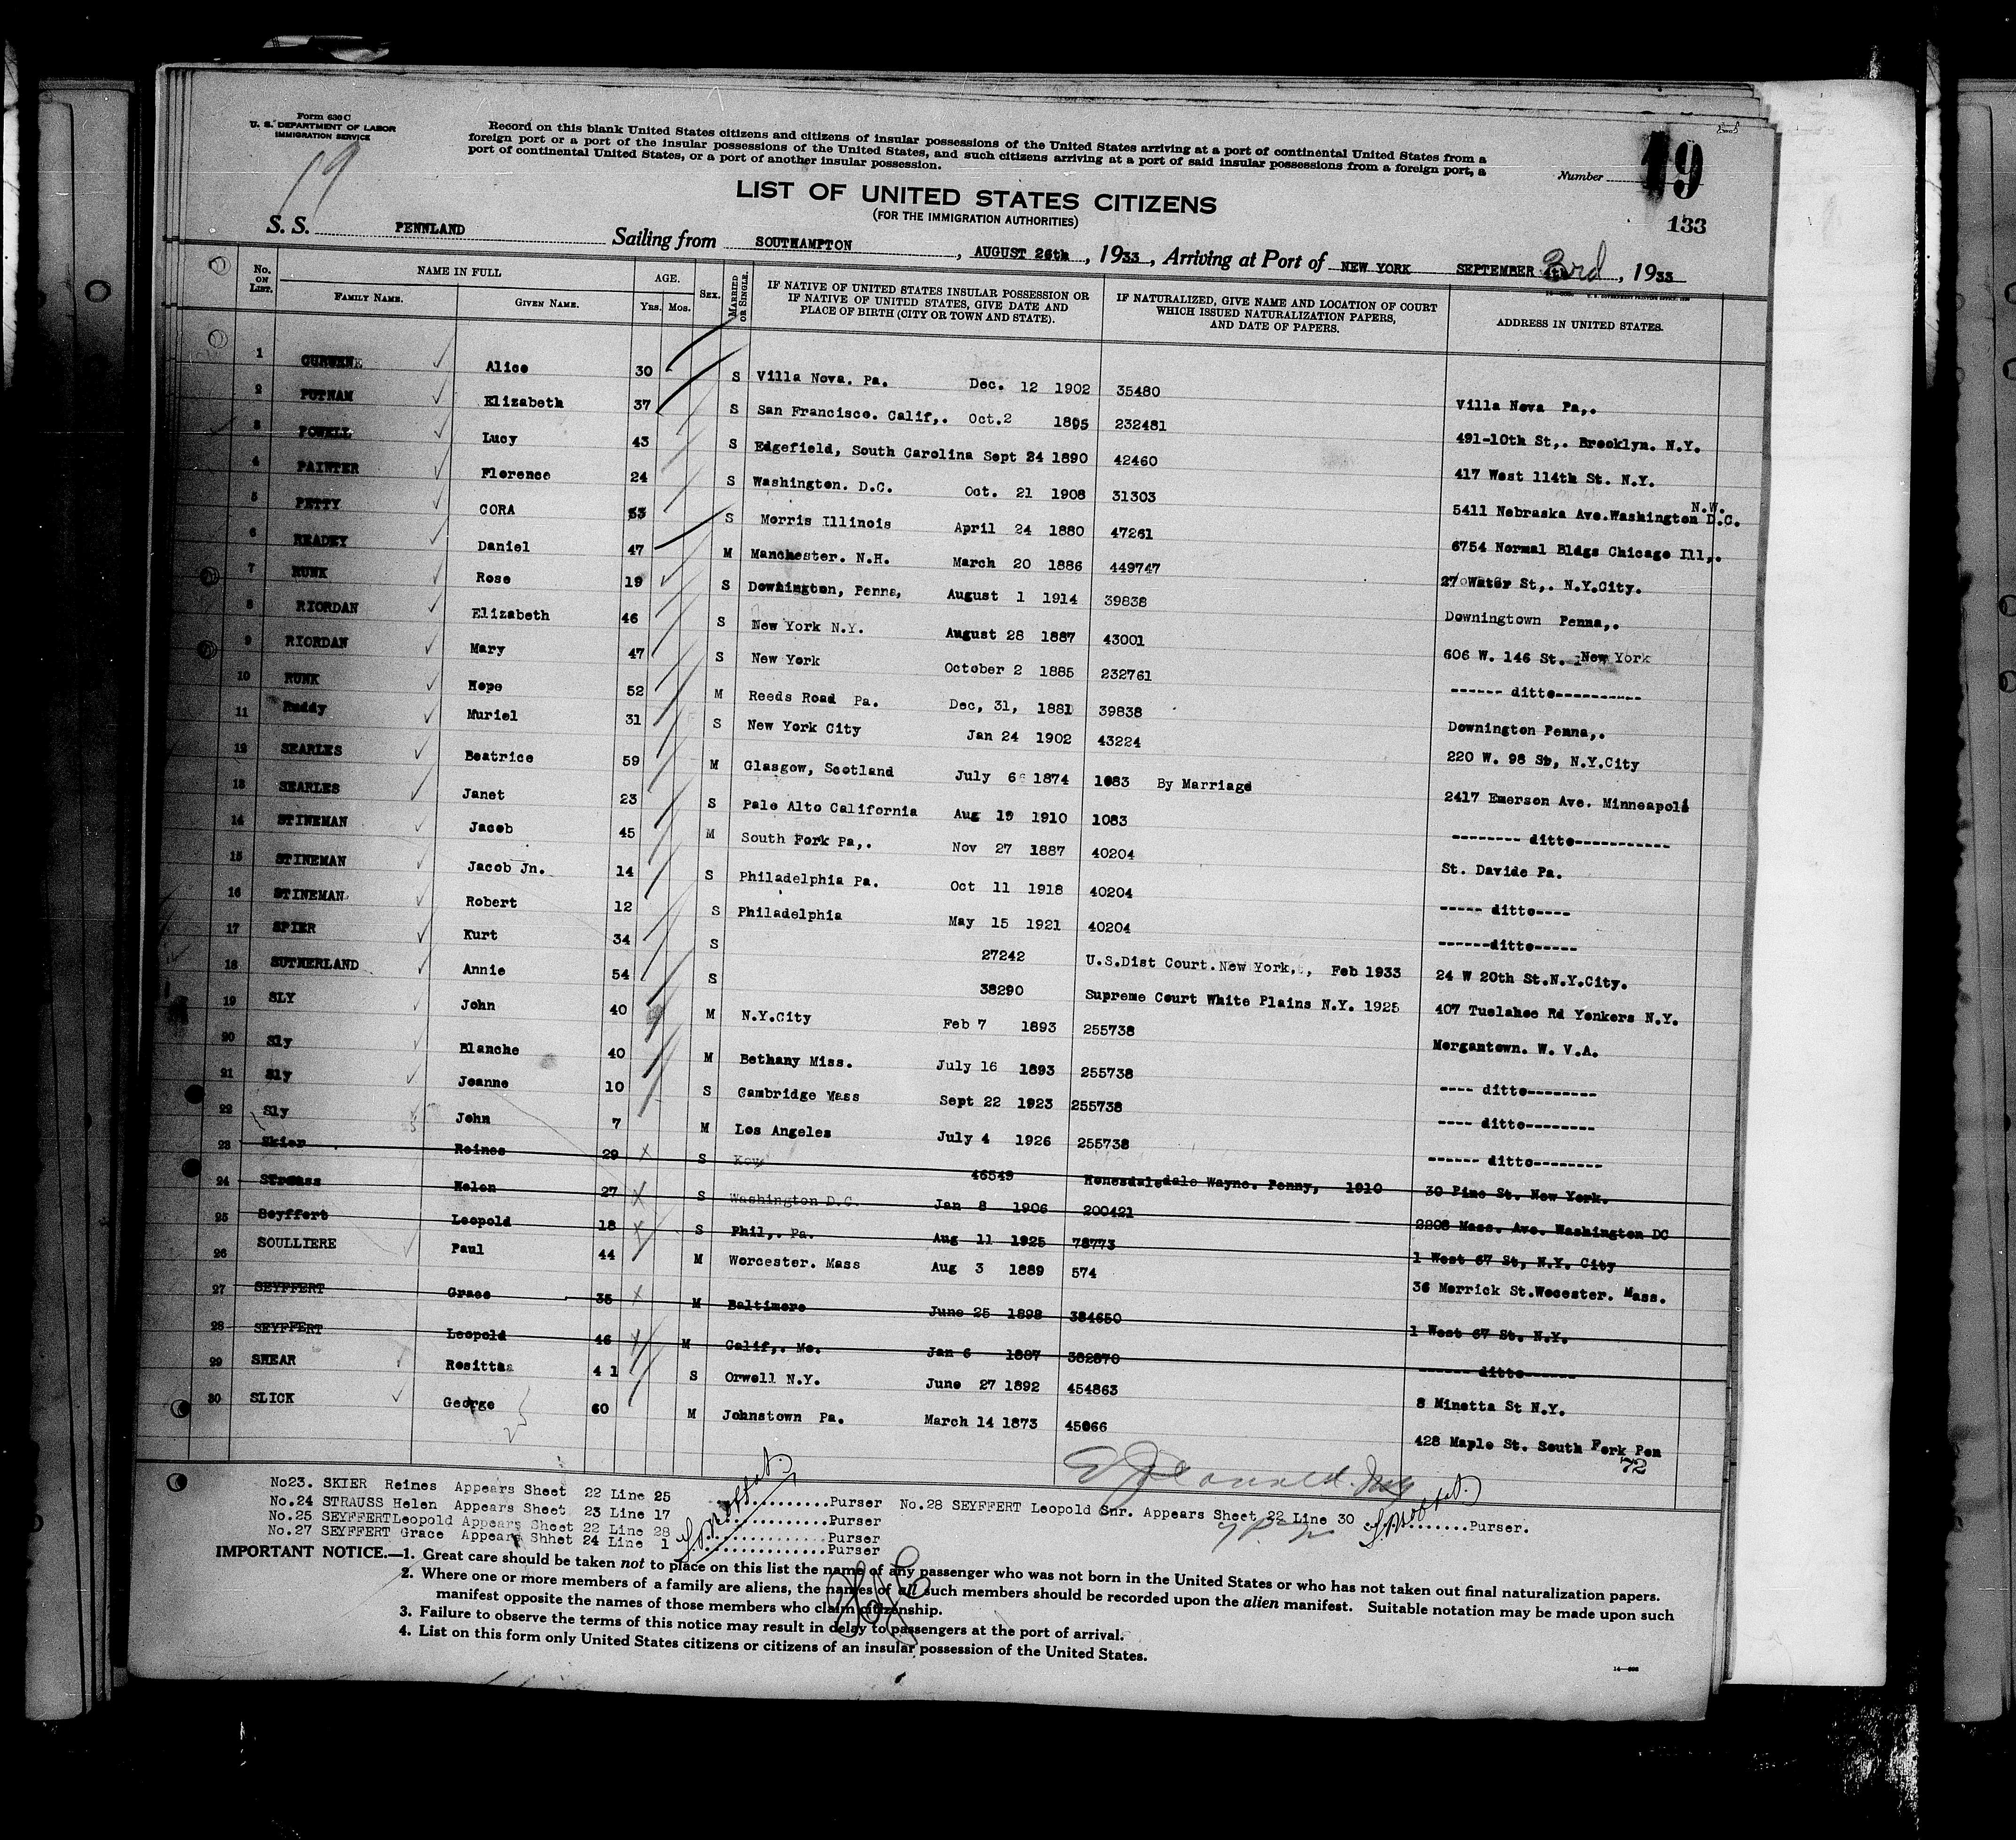 Form 630 C
U. S. DEPARTMENT OF LABOR
IMMIGRATION SERVICE
19
Record on this blank United States citizens and citizens of insular possessions of the United States arriving at a port of continental United States from a
foreign port or a port of the insular possessions of the United States, and such citizens arriving at a port of said insular possessions from a foreign port, a
port of continental United States, or a port of another insular possession.
Number 19
133
LIST OF UNITED STATES CITIZENS
(FOR THE IMMIGRATION AUTHORITIES)
S. S. PENNLAND Sailing from SOUTHAMPTON, AUGUST 26th, 1933, Arriving at Port of NEW YORK SEPTEMBER 3rd, 1933
No. ON LIST. NAME IN FULL FAMILY NAME. GIVEN NAME. AGE. Yrs. Mos. SEX. MARRIED OR SINGLE. IF NATIVE OF UNITED STATES INSULAR POSSESSION OR IF NATIVE OF UNITED STATES, GIVE DATE AND PLACE OF BIRTH (CITY OR TOWN AND STATE). IF NATURALIZED, GIVE NAME AND LOCATION OF COURT WHICH ISSUED NATURALIZATION PAPERS, AND DATE OF PAPERS. ADDRESS IN UNITED STATES.
1 Alice 30 S Villa Nova. Pa. Dec. 12 1902 35480 Villa Nova Pa,.
2 PUTNAM Elizabeth 37 S San Francisco. Calif,. Oct.2 1895 232481 491-10th St,. Brooklyn. N.Y.
3 POWELL Lucy 43 S Edgefield, South Carolina Sept 24 1890 42460 417 West 114th St. N.Y.
4 PAINTER Florence 24 S Washington. D.C. Oct. 21 1908 31303 5411 Nebraska Ave.Washington N.W. D.C.
5 PETTY CORA 53 S Morris Illinois April 24 1880 47261 6754 Normal Bldgs Chicago Ill,.
6 READEY Daniel 47 M Manchester. N.H. March 20 1886 449747 27 Water St,. N.Y.City.
7 RUNK Rose 19 S Downington, Penna, August 1 1914 39838 Downingtown Penna,.
8 RIORDAN Elizabeth 46 S New York N.Y. August 28 1887 43001 606 W. 146 St. New York
9 RIORDAN Mary 47 S New York October 2 1885 232761 ------ ditto----------
10 RUNK Hope 52 M Reeds Road Pa. Dec, 31, 1881 39838 Downington Penna,.
11 Ruddy Muriel 31 S New York City Jan 24 1902 43224 220 W. 98 St, N.Y.City
12 SEARLES Beatrice 59 M Glasgow, Scotland July 6 1874 1083 By Marriage 2417 Emerson Ave. Minneapoli
13 SEARLES Janet 23 S Palo Alto California Aug 19 1910 1083 -------- ditto-----------
14 STINEMAN Jacob 45 M South Fork Pa,. Nov 27 1887 40204 St. Davids Pa.
15 STINEMAN Jacob Jn. 14 S Philadelphia Pa. Oct 11 1918 40204 ----- ditto----
16 STINEMAN Robert 12 S Philadelphia May 15 1921 40204 ------ditto-----
17 SPIER Kurt 34 S 27242 U.S.Dist Court.New York,., Feb 1933 24 W 20th St.N.Y.City.
18 SUTHERLAND Annie 54 S 38290 Supreme Court White Plains N.Y. 1925 407 Tuelahoe Rd Yonkers N.Y.
19 SLY John 40 M N.Y.City Feb 7 1893 255738 Morgantown. W. V.A.
20 Sly Blanche 40 M Bethany Miss. July 16 1893 255738 ---- ditto--------
21 Sly Jeanne 10 S Cambridge Mass Sept 22 1923 255738 ---- ditto--------
22 Sly John 7 M Los Angeles July 4 1926 255738 ------ ditto--------
23 Skier Reines 29 S 46549 Wayne. Penny, 1910 30 Pine St. New York.
24 Strauss Helen 27 S Washington D.C. Jan 8 1906 200421 2208 Mass. Ave. Washington DC
25 Seyffert Leopold 18 S Phil,. Pa. Aug 11 1925 78773 1 West 67 St, N.Y. City
26 SOULLIERE Paul 44 M Worcester. Mass Aug 3 1889 574 36 Merrick St.Wocester. Mass.
27 SEYFFERT Grace 35 M Baltimore June 25 1898 384650 1 West 67 St. N.Y.
28 SEYFFERT Leopold 46 M Calif,. Mo. Jan 6 1887 382870 ------ ditto------
29 SHEAR Rositta 4 1 S Orwell N.Y. June 27 1892 454863 8 Minetta St N.Y.
30 SLICK George 60 M Johnstown Pa. March 14 1873 45066 428 Maple St. South Fork Pen
72
No23. SKIER Reines Appears Sheet 22 Line 25 ............Purser No.28 SEYFFERT Leopold Snr. Appears Sheet 22 Line 30 ............Purser.
No.24 STRAUSS Helen Appears Sheet 23 Line 17 ............Purser
No.25 SEYFFERTLeopold Appears Sheet 22 Line 28 ............Purser
No.27 SEYFFERT Grace Appears Shhet 24 Line 1 ............Purser
IMPORTANT NOTICE.—1. Great care should be taken not to place on this list the name of any passenger who was not born in the United States or who has not taken out final naturalization papers.
2. Where one or more members of a family are aliens, the names of all such members should be recorded upon the alien manifest. Suitable notation may be made upon such
manifest opposite the names of those members who claim citizenship.
3. Failure to observe the terms of this notice may result in delay to passengers at the port of arrival.
4. List on this form only United States citizens or citizens of an insular possession of the United States.